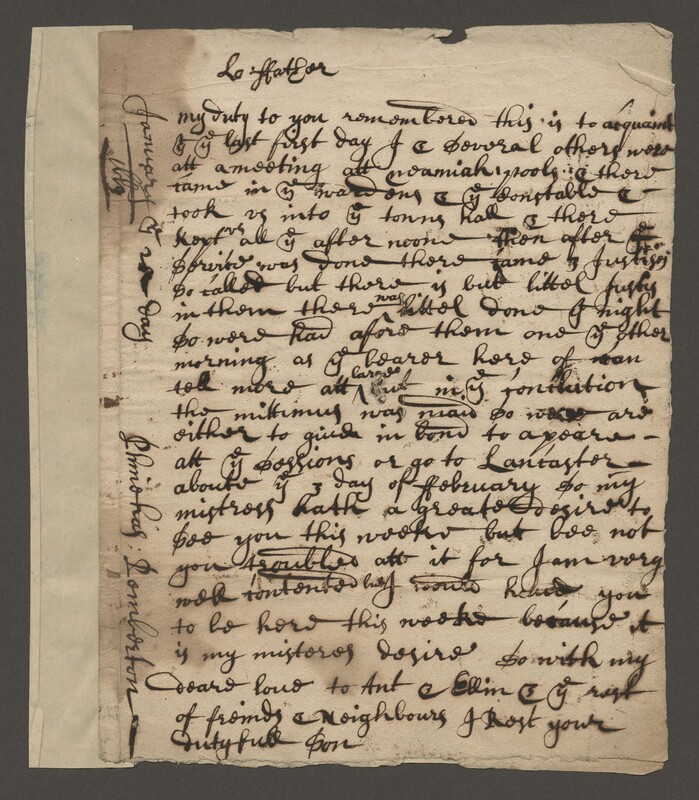 Lo: ffather
my duty to you remembered this is to acquaint
yt ye last first day I & Several others were
att a meeting att neamiah pools & there
came in ye wardens & ye Constable &
took vs into ye tonns hall & there
kept vs all ye after noone then after ye
Service was done there came 3 Justises
so called but there is but littel Justis
in them there was littel done yt night
so were had afore them one ye other
morning as ye bearer here of can
tell more att large but in ye conclution
the mittimus was maid so wee are
either to give in bond to apeare
att ye Sessions or go to Lancaster
aboute ye 3 day of ffebruary so my
mistress hath a greate desire to
see you this weeke but bee not
you troubled att it for I am very
well contented but I would have you
to be here this weeke because it
is my misteres desire so with my
deare love to Ant & Ellin & ye rest
of freinds & Neighbours I Rest your
dutyfull Son
January ye day
Phinehas: Pemberton